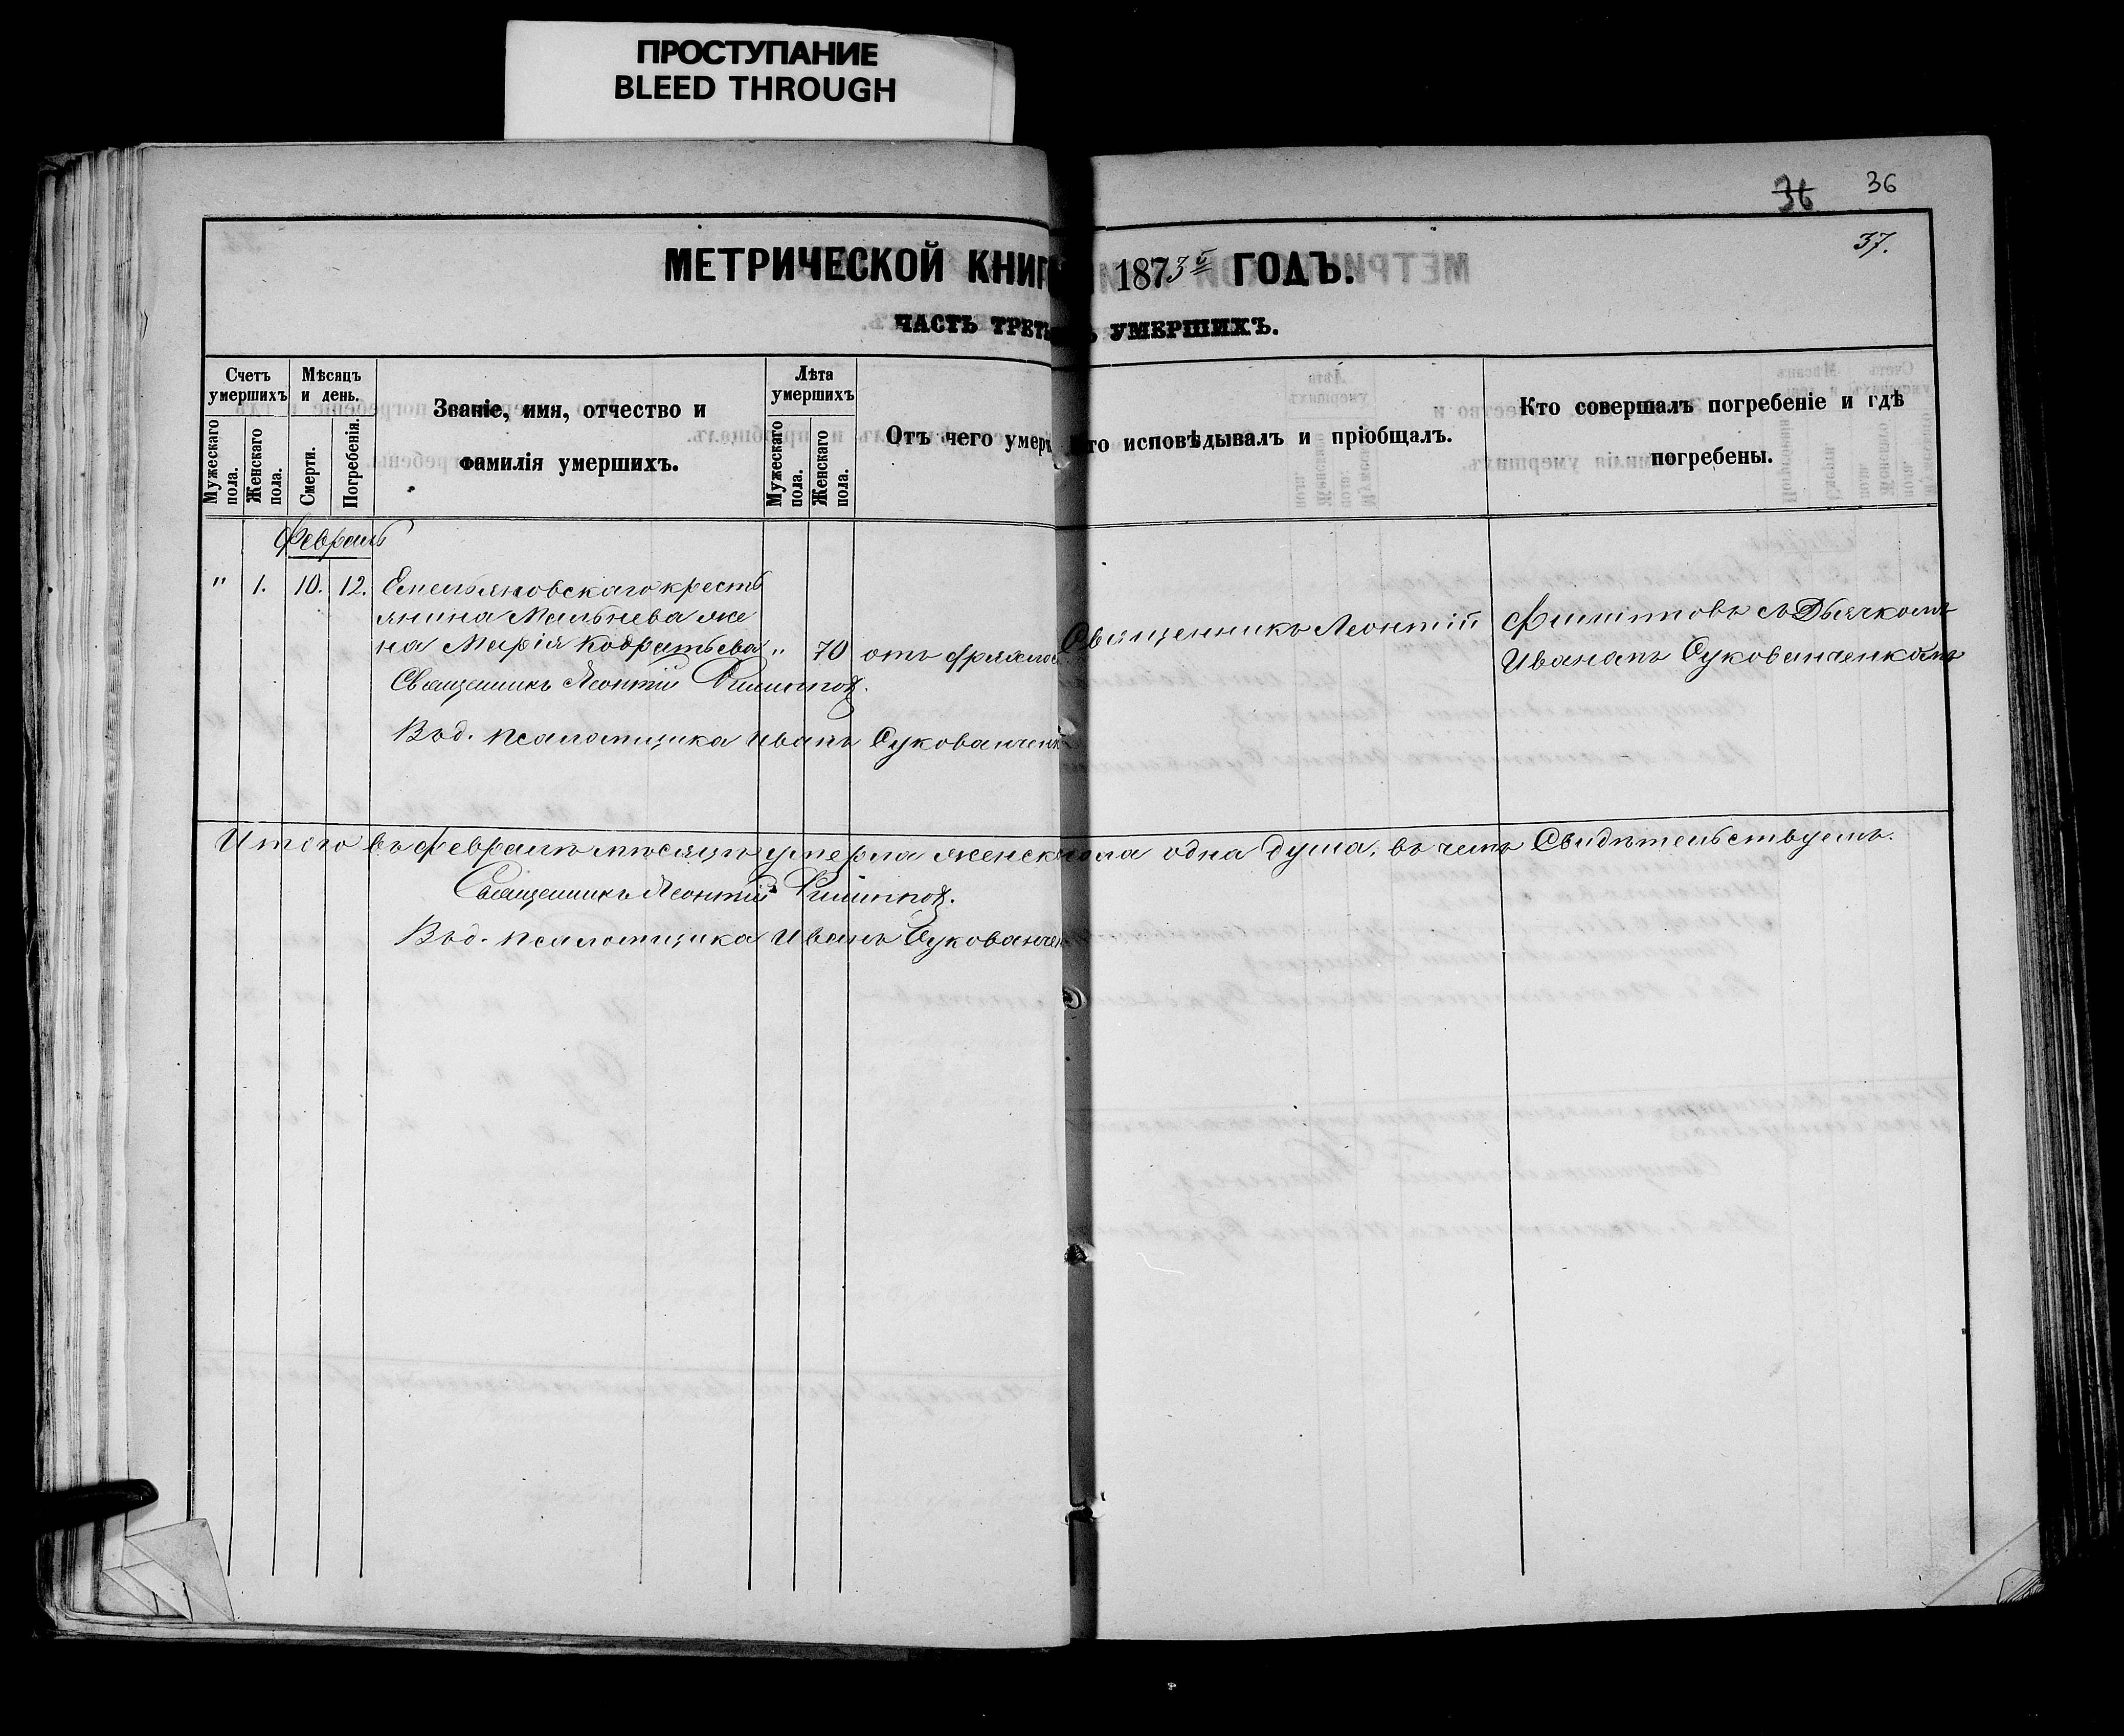 ПРОСТУПАНИЕ
BLEED THROUGH
36 36
37.
МЕТРИЧЕСКОЙ КНИГ 1873й ГОДЪ.
ЧАСТЬ ТРЕТЬ УМЕРШИХЪ.
Счетъ умершихъ
Мужескаго пола.
Женскаго пола.
Мѣсяцъ и день.
Смерти.
Погребенія.
Званіе, имя, отчество и
фамилія умершихъ.
Лѣта умершихъ
Мужескаго пола.
Женскаго пола.
Отъ чего умер
то исповѣдывалъ и пріобщалъ.
Кто совершалъ погребеніе и гдѣ
погребены.
Февраль
" 1. 10. 12. Емельяновскаго кресть
янина Мальнева же
на Марія Кодратьева " 70 отъ дряхлос
Священникъ Леонтій Филиповъ.
В. д. псаломщика Иванъ Сукованчен
Священникъ Леонтій
Филиповъ съ Дьячкомъ
Иваномъ Сукованченкомъ
Итого въ февралѣ мѣсяцѣ умерла женск пола одна душа, въ чемъ Свидѣтельствуемъ.
Священникъ Леонтій Филиповъ.
В. д. псаломщика Иванъ Сукованчен